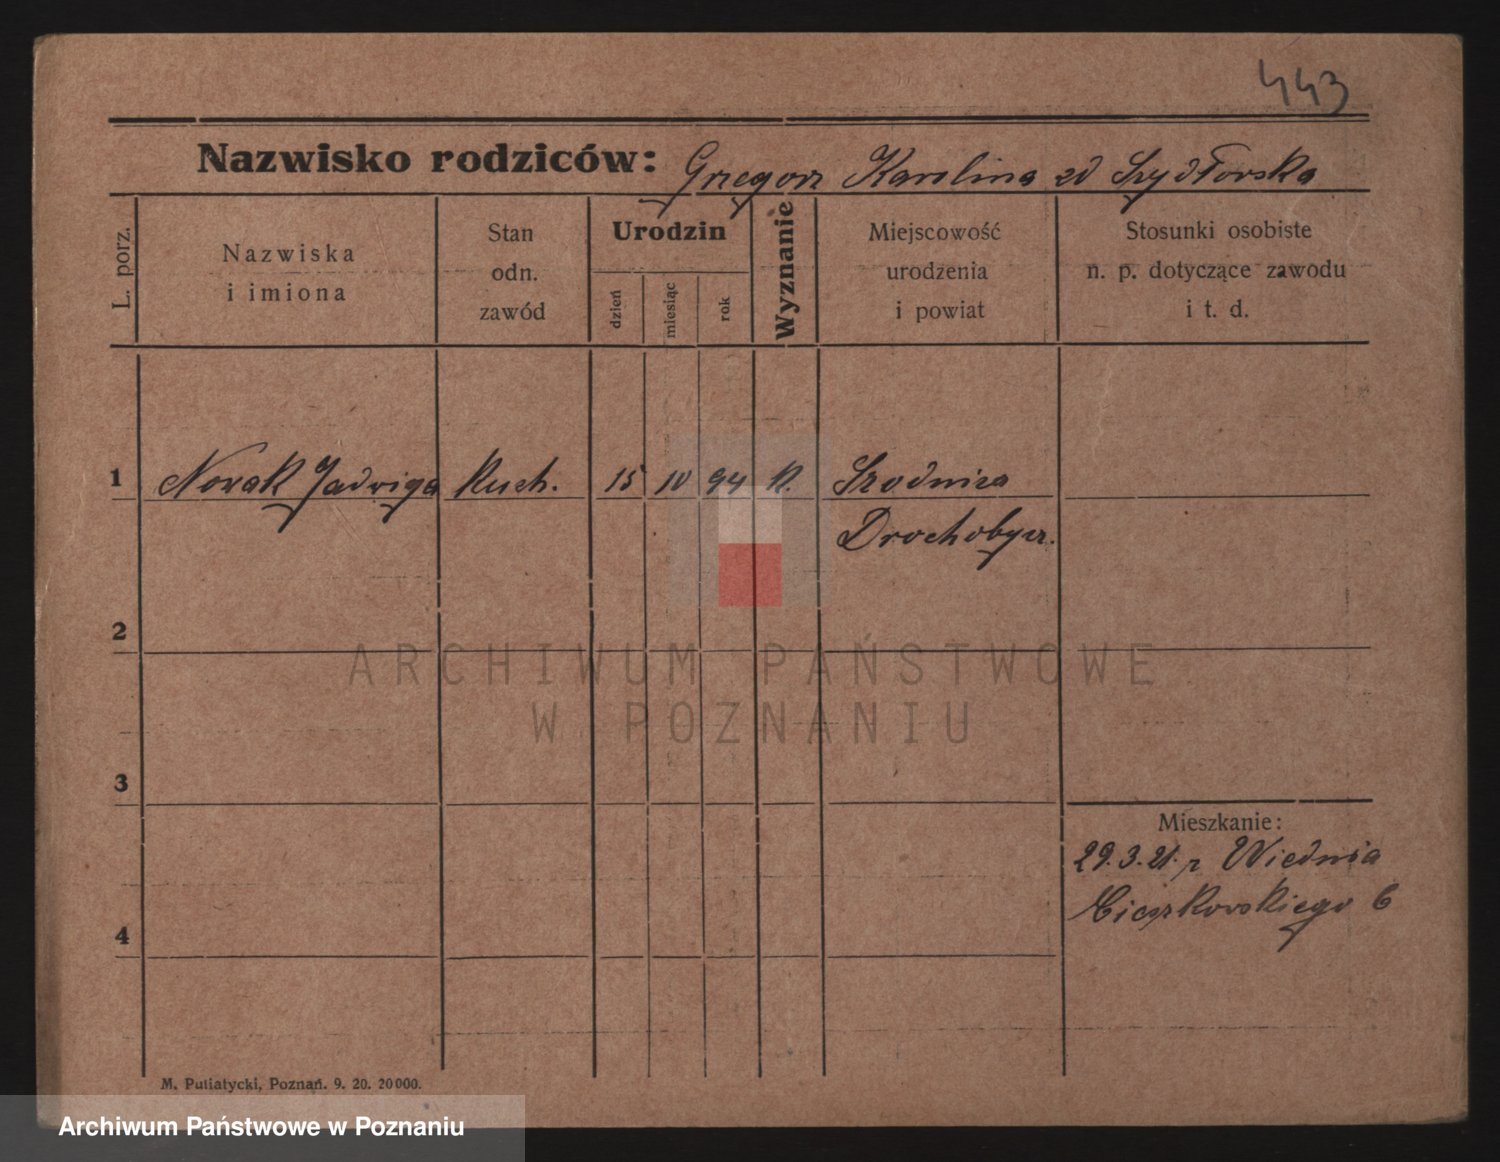 443
Nazwisko rodziców: Grzegorz Karolina zd Szydłowska
L. porz.
Nazwiska i imiona
Stan odn. zawód
Urodzin
dzień
miesiąc
rok
Wyznanie
Miejscowość urodzenia i powiat
Stosunki osobiste n. p. dotyczące zawodu i t. d.
1 Nowak Jadwiga Kuch. 15 10 94 K. Szodnica
Drochobycz.
2
ARCHIWUM PAŃSTWOWE
W POZNANIU
3
Mieszkanie:
29.3.21. z Wiednia
Cieszkowskiego 6
4
M. Putiatycki, Poznań. 9. 20. 20000.
Archiwum Państwowe w Poznaniu